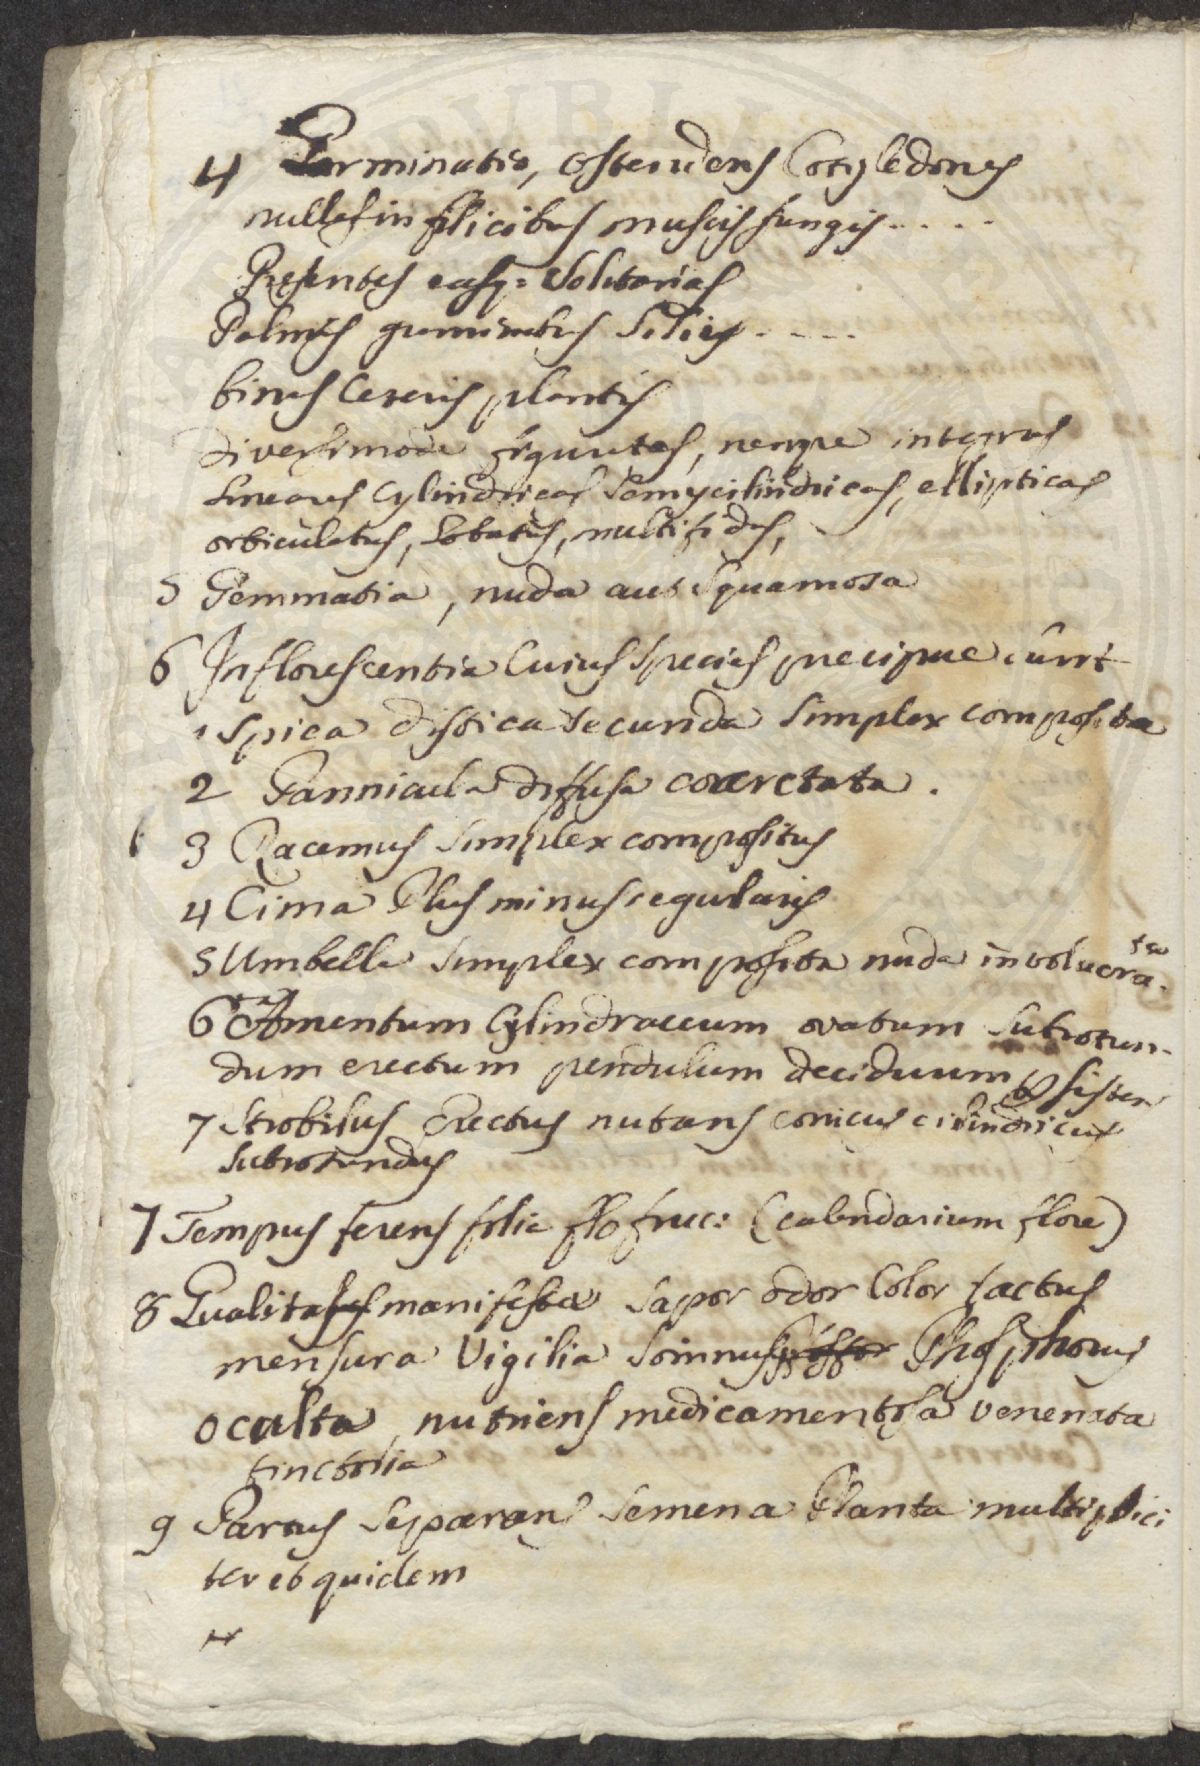 4 Germinatio, ostendens Cotyledones
nullas in filicibus muscis fungis - - - -
Presentes easq: Solitarias
Palmis graminibus Liliis - - - -
binas Ceteris plantis
diversimode figuratas, nempe integras
Lineares Cylindricas Semycilindricas, ellipticas
orbiculatas, Lobatas, multifidas,
5 Gemmatia, nuda aut Squamosa
6 Inflorescentia Cuius Species precipue sunt
1 Spica distica secunda Simplex composita
2 Pannicula diffusa coarctata.
3 Racemus Simplex compositus
4 Cima Plus minus regularis
5 Umbella Simplex composita nuda involucra
ta
6 Amentum Cylindraceum ovatum Subrotun-
dum erectum pendulum deciduum
7 Strobilus Erectus nutans conicus cilindricus
Subrotundus
7 Tempus ferens folia flo fruc: (calendarium flore)
8 Qualitas manifesta Sapor odor Color tactus
mensura Vigilia Somnus Phosphorus
oculta nutriens medicamentosa venenata
tinctoria
9 Partus Separans Semen a Planta multiplici
ter et quidem